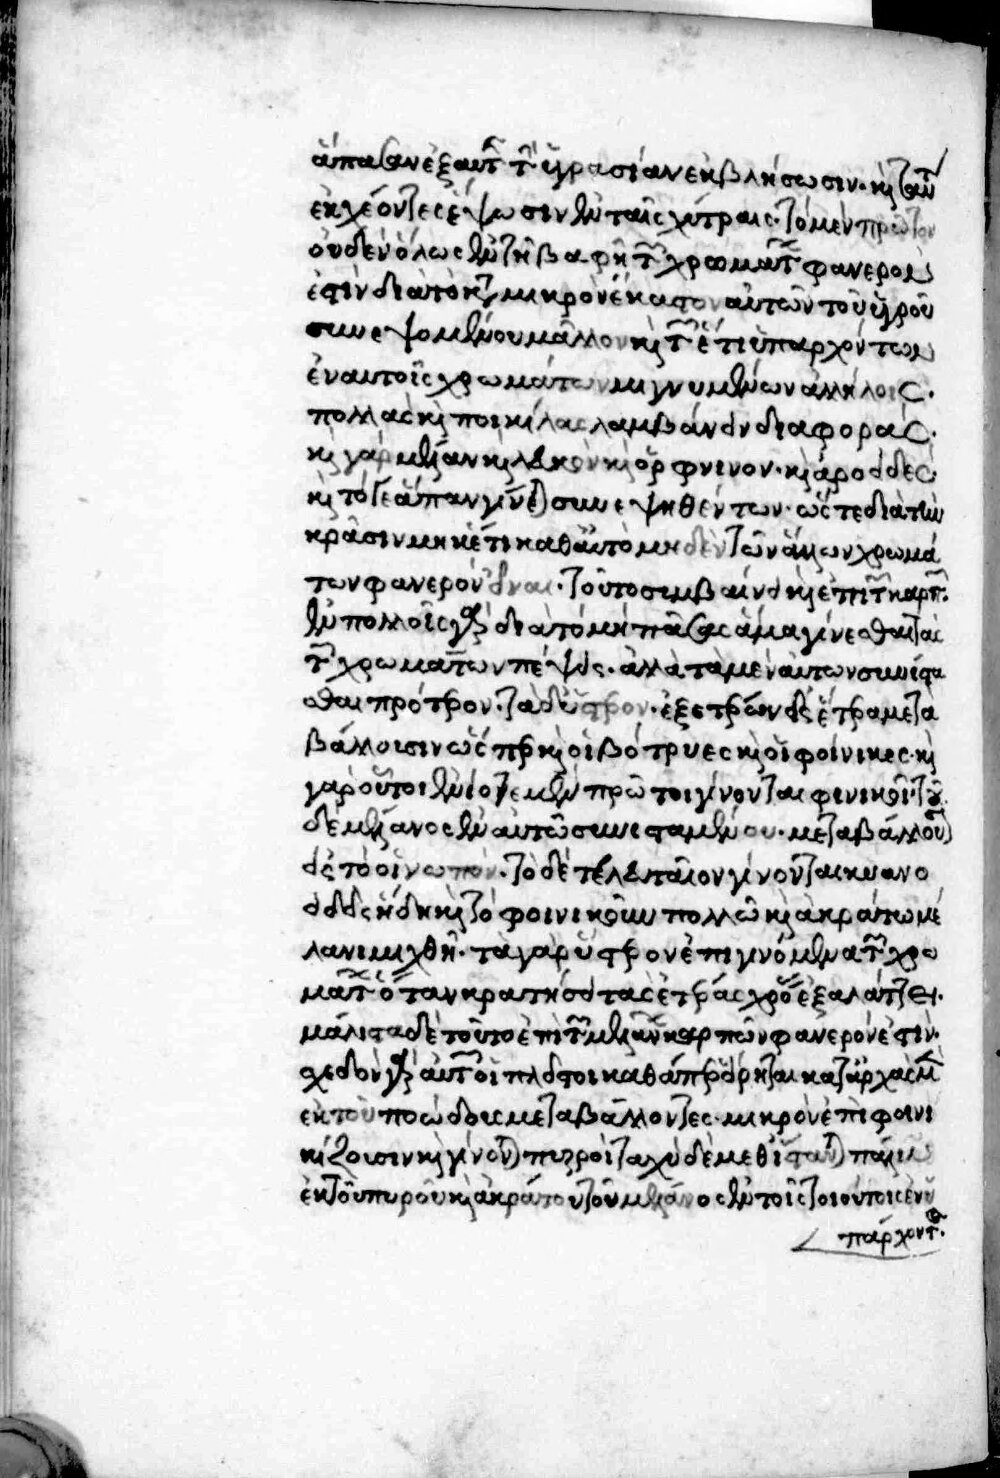 ἅπασαν ἐξ αὐτῶν τὴν ὑγρασίαν ἐκβλήσωσιν· καὶ ταύτην
ἐκχέοντες ἕψωσιν ἐν ταῖς χύτραις· τὸ μὲν πρῶτον
οὐδὲν ὅλως ἐν τῇ βαφῇ τῶν χρωμάτων φανερόν
ἐστιν διὰ τὸ κατὰ μικρὸν ἕκαστον αὐτῶν τοῦ ὑγροῦ
συνεψομένου μᾶλλον καὶ τῶν ἔτι ὑπαρχόντων
ἐν αὐτοῖς χρωμάτων μιγνυμένων ἀλλήλοις·
πολλὰς καὶ ποικίλας λαμβάνειν διαφοράς·
καὶ γὰρ μέλαν καὶ λευκὸν καὶ ὄρφνινον· καὶ ἀεροειδές·
καὶ τό γε ἅπαν γίνεται συνεψηθέντων· ὥστε διὰ τὴν
κρᾶσιν μηκέτι καθ' αὑτὸ μηδὲν τῶν ἄλλων χρωμά
των φανερὸν εἶναι· τοῦτο συμβαίνει καὶ ἐπὶ τῶν καρπῶν·
ἐν πολλοῖς γὰρ διὰ τὸ μὴ πάσας ἅμα γίνεσθαι τὰς
τῶν χρωμάτων πέψεις· ἀλλὰ τὰ μὲν αὐτῶν συνίστα
σθαι πρότερον· τὰ δ' ὕστερον· ἐξ ἑτέρων εἰς ἕτερα μετα
βάλλουσιν ὥσπερ καὶ οἱ βότρυες καὶ οἱ φοίνικες· καὶ
γὰρ οὗτοι ἔνιοί γε μὲν πρῶτοι γίνονται φινικοῖ· τοῦ
δὲ μέλανος ἐν αὐτῷ συνισταμένου· μεταβάλλουσι
εἰς τὸ οἰνωπόν· τὸ δὲ τελευταῖον γίνονται κυανο
ειδεῖς ἤδη καὶ τὸ φοινικοῦν πολλῷ καὶ ἀκράτῳ μέ
λανι μιχθῇ· τὰ γὰρ ὕστερον ἐπιγινόμενα τῶν χρω
μάτων ὅταν κρατήσει τὰς ἑτέρας χρόας ἐξαλάττει·
μάλιστα δὲ τοῦτο ἐπὶ τῶν μελάνων καρπῶν φανερόν ἐστιν·
σχεδὸν γὰρ αὐτῶν οἱ πλεῖστοι καθάπερ εἴρηται κατ' ἀρχὰς μὲν
ἐκ τοῦ ποώδους μεταβάλλοντες· μικρὸν ἐπιφοινι
κίζουσιν καὶ γίνονται πυρροί· ταχὺ δὲ μεθίστανται πάλιν
ἐκ τοῦ πυροῦ καὶ ἀκράτου τοῦ μέλανος ἐν τοῖς τοιούτοις ἐνυ
πάρχοντος·